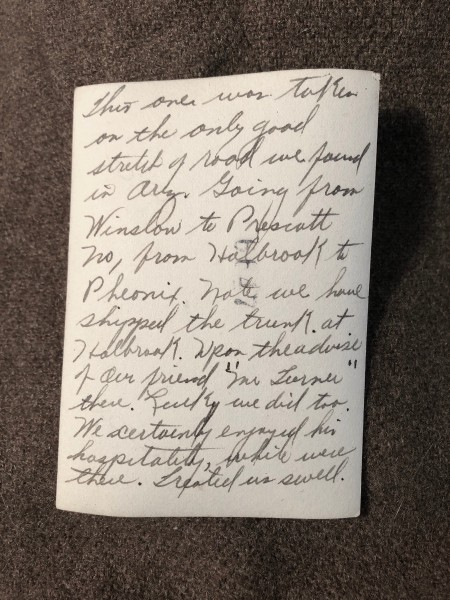 This one was taken
on the only good
stretch of road we found
in Ariz. Going from
Winslow to Prescott
No, from Holbrook to
Pheonix. Note we have
shipped the trunk at
Holbrook. Upon the advise
of our friend "Mr Turner"
there. Lucky we did too.
We certainly enjoyed his
hospitality, while were
there. Treated us swell.